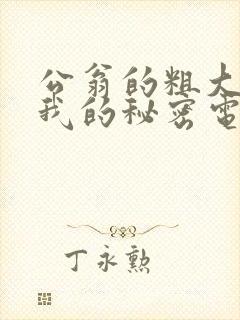 公翁的粗大
我的秘密電
丁永勲